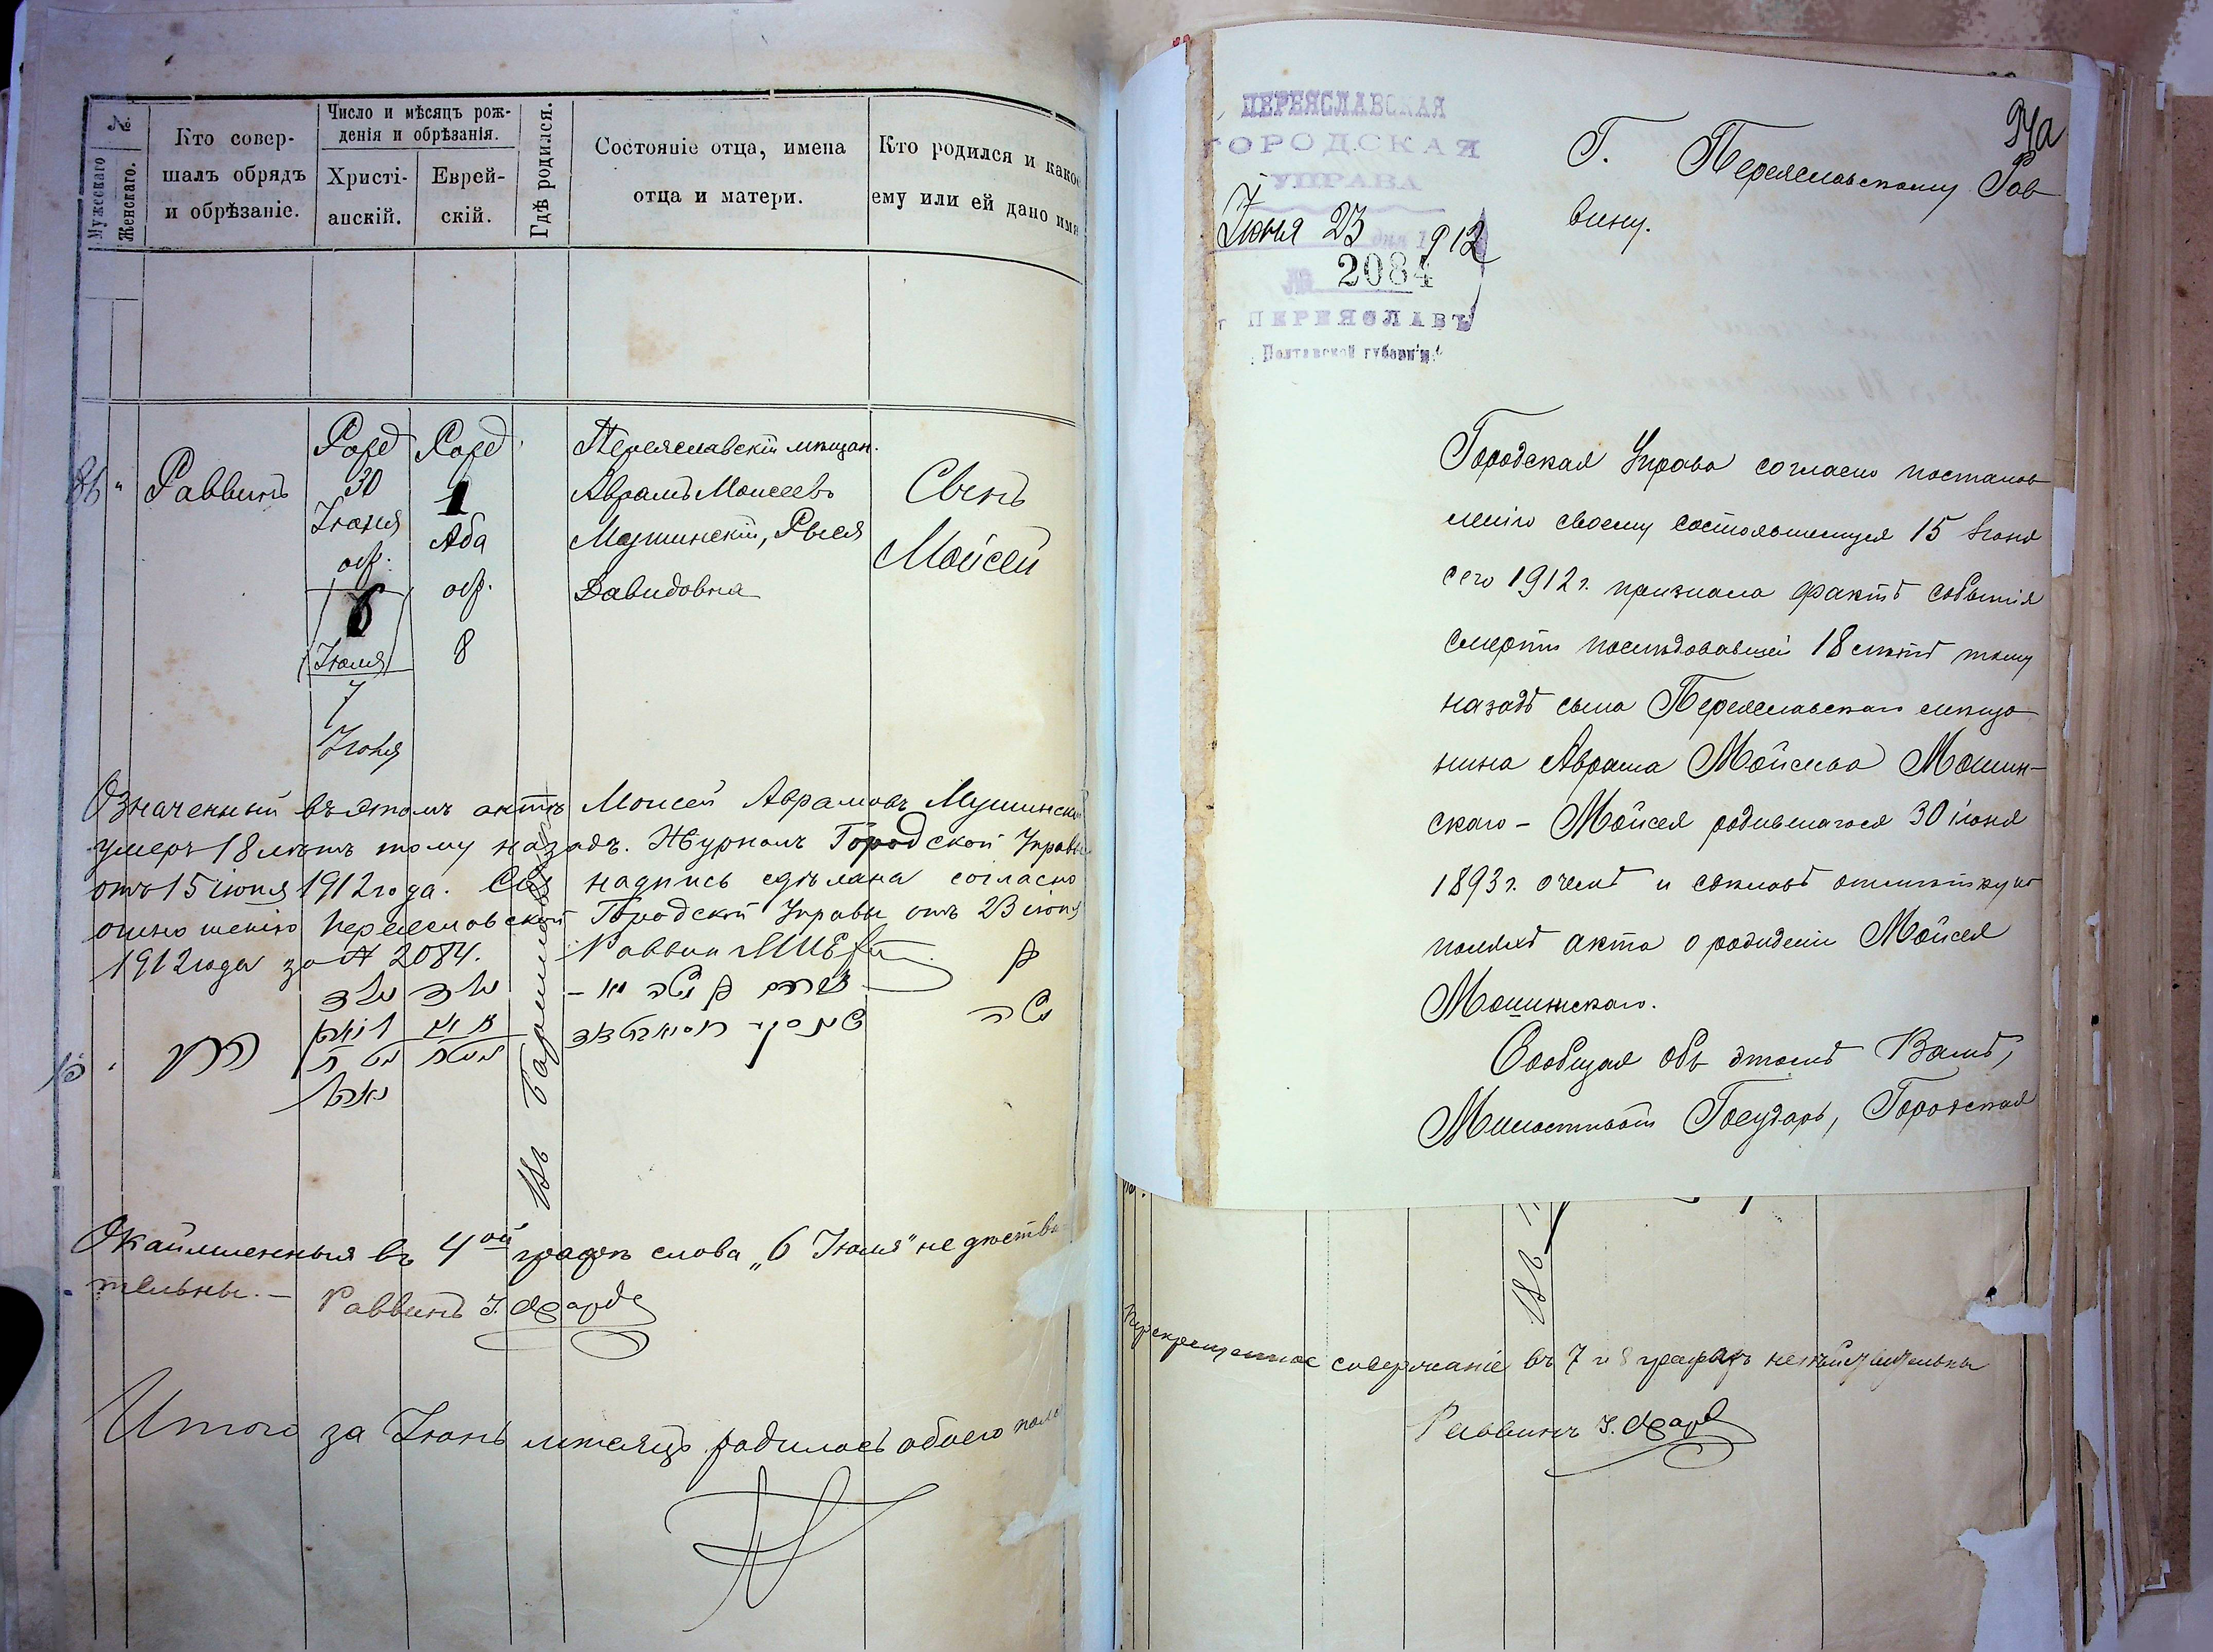 №
Мужескаго
Женскаго.
Кто совер-
шалъ обрядъ
и обрѣзаніе.
Число и мѣсяцъ рож-
денія и обрѣзанія.
Христі-
анскій.
Еврей-
скій.
Гдѣ родился.
Состояніе отца, имена
отца и матери.
Кто родился и какое
ему или ей дано имя
Раввинъ
30
Іюня
обр.
6
Іюля
7
Іюля
1
Аба
обр.
8
Переяславскій мѣщан.
Аврамъ Моисеевъ
Мушинскій, Рыся
Давидовна
Сынъ
Мойсей
Означенный въ этомъ актѣ Моисей Аврамовъ Мушинскій
умеръ 18 лѣтъ тому назадъ. Журналъ Городской Управы
отъ 15 іюня 1912 года. Сія надпись сдѣлана согласно
отношенію Переяславской Городской Управы отъ 23 іюня
1912 года за № 2084. Раввин
Окаймленныя въ 4ой графѣ слова „6 Іюля" не дѣстви
тельны. – Раввинъ
Итого за Іюнь мѣсяцъ родилось обоего пола
ПЕРЕЯСЛАВСКАЯ
ГОРОДСКАЯ
УПРАВА
Іюня 23 дня 1912
№ 2084
г. ПЕРЕЯСЛАВЪ
Полтавской губерніи.
Г. Переяславскому Рав
вину.
Городская Управа согласно постанов
ленію своему состоявшемуся 15 Іюня
сего 1912 г. признала фактъ событія
смерти послѣдовавшей 18 лѣтъ тому
назадъ сына Переяславскаго мѣща
нина Аврама Мойсеева Мошин-
скаго – Мойсея родившагося 30 іюня
1893 г. о чемъ и сдѣлать отмѣтку на
поляхъ акта о рожденіи Мойсея
Мошинскаго.
Сообщая объ этомъ Вамъ,
Милостивый Государь, Городская
Перекрещенное содержаніе въ 7 и 8 графахъ недѣйствительны
Раввинъ